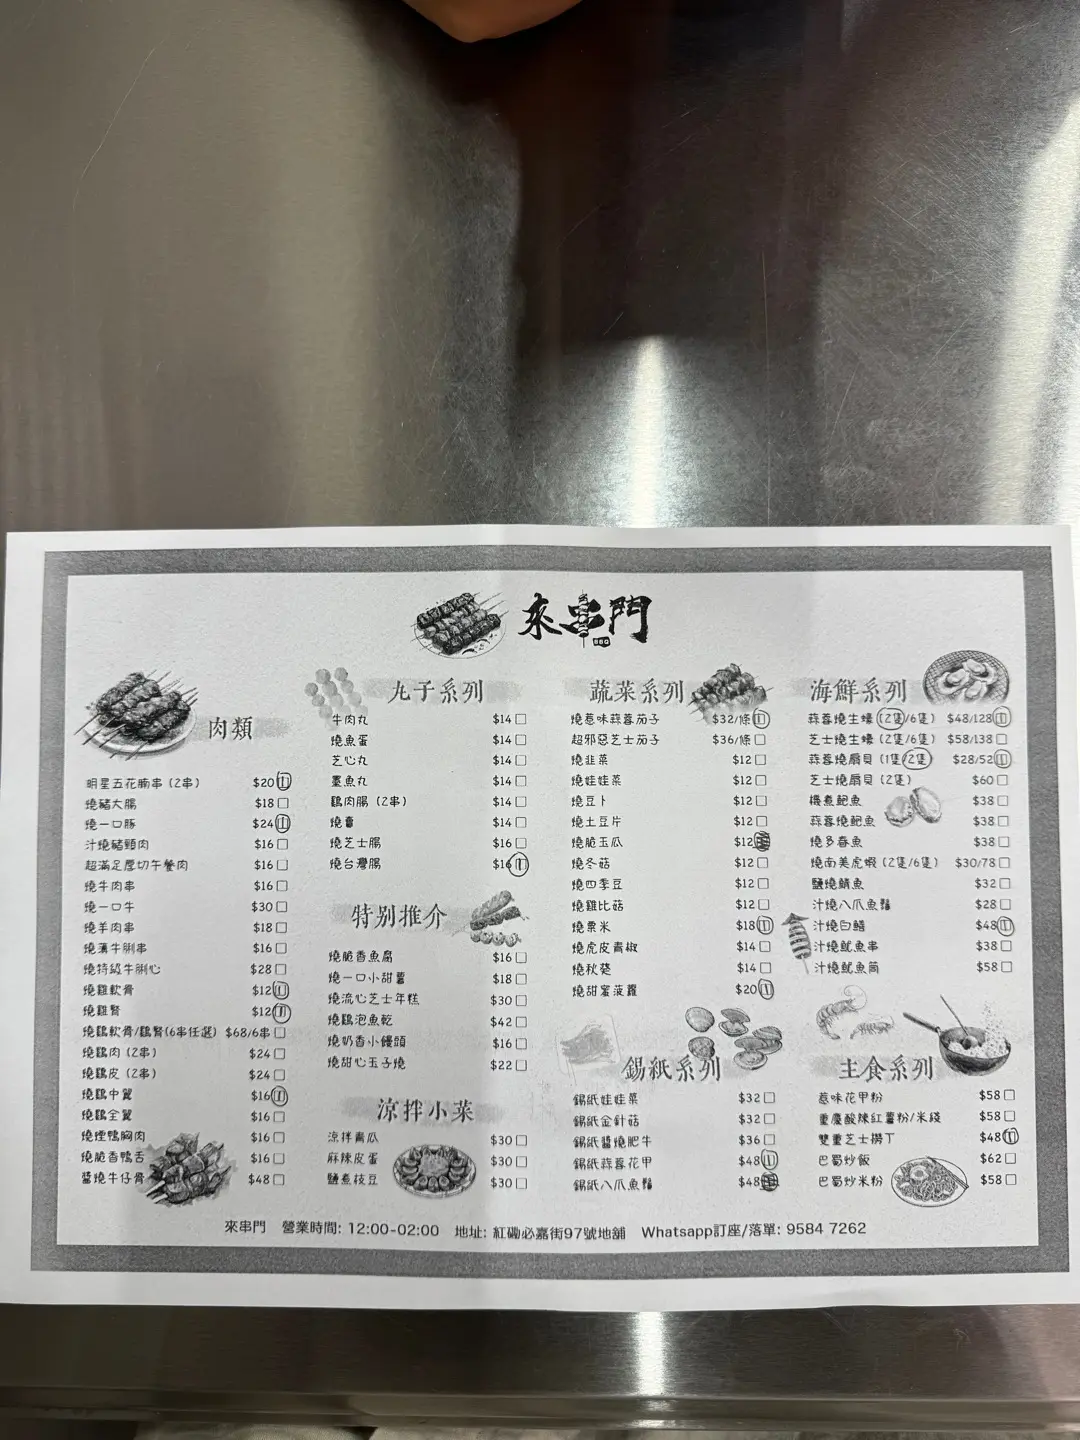 來串門
BBQ
肉類
明星五花腩串 (2串) $20
燒豬大腸 $18
燒一口豚 $24
汁燒豬頸肉 $16
超滿足厚切午餐肉 $16
燒牛肉串 $16
燒一口牛 $30
燒羊肉串 $18
燒薄牛脷串 $16
燒特級牛脷心 $28
燒雞軟骨 $12
燒雞腎 $12
燒鷄軟骨/鷄腎(6串任選) $68/6串
燒鷄肉 (2串) $24
燒鷄皮 (2串) $24
燒鷄中翼 $16
燒鷄全翼 $16
燒煙鴨胸肉 $16
燒脆香鴨舌 $16
醬燒牛仔骨 $48
丸子系列
牛肉丸 $14
燒魚蛋 $14
芝心丸 $14
墨魚丸 $14
鷄肉腸 (2串) $14
燒賣 $14
燒芝士腸 $16
燒台灣腸 $16
特別推介
燒脆香魚腐 $16
燒一口小甜薯 $18
燒流心芝士年糕 $30
燒鷄泡魚乾 $42
燒奶香小饅頭 $16
燒甜心玉子燒 $22
涼拌小菜
涼拌青瓜 $30
麻辣皮蛋 $30
鹽煮枝豆 $30
蔬菜系列
燒惹味蒜蓉茄子 $32/條
超邪惡芝士茄子 $36/條
燒韭菜 $12
燒娃娃菜 $12
燒豆卜 $12
燒土豆片 $12
燒脆玉瓜 $12
燒冬菇 $12
燒四季豆 $12
燒雞比菇 $12
燒粟米 $18
燒虎皮青椒 $14
燒秋葵 $14
燒甜蜜菠蘿 $20
錫紙系列
錫紙娃娃菜 $32
錫紙金針菇 $32
錫紙醬燒肥牛 $36
錫紙蒜蓉花甲 $48
錫紙八爪魚鬚 $48
海鮮系列
蒜蓉燒生蠔 (2隻/6隻) $48/128
芝士燒生蠔 (2隻/6隻) $58/138
蒜蓉燒扇貝 (1隻/2隻) $28/52
芝士燒扇貝 (2隻) $60
機煮鮑魚 $38
蒜蓉燒鮑魚 $38
燒多春魚 $38
燒南美虎蝦 (2隻/6隻) $30/78
鹽燒鯖魚 $32
汁燒八爪魚鬚 $28
汁燒白鱔 $48
汁燒魷魚串 $38
汁燒魷魚筒 $58
主食系列
惹味花甲粉 $58
重慶酸辣紅薯粉/米綫 $58
雙重芝士撈丁 $48
巴蜀炒飯 $62
巴蜀炒米粉 $58
來串門 營業時間: 12:00-02:00 地址: 紅磡必嘉街97號地舖 Whatsapp訂座/落單: 9584 7262